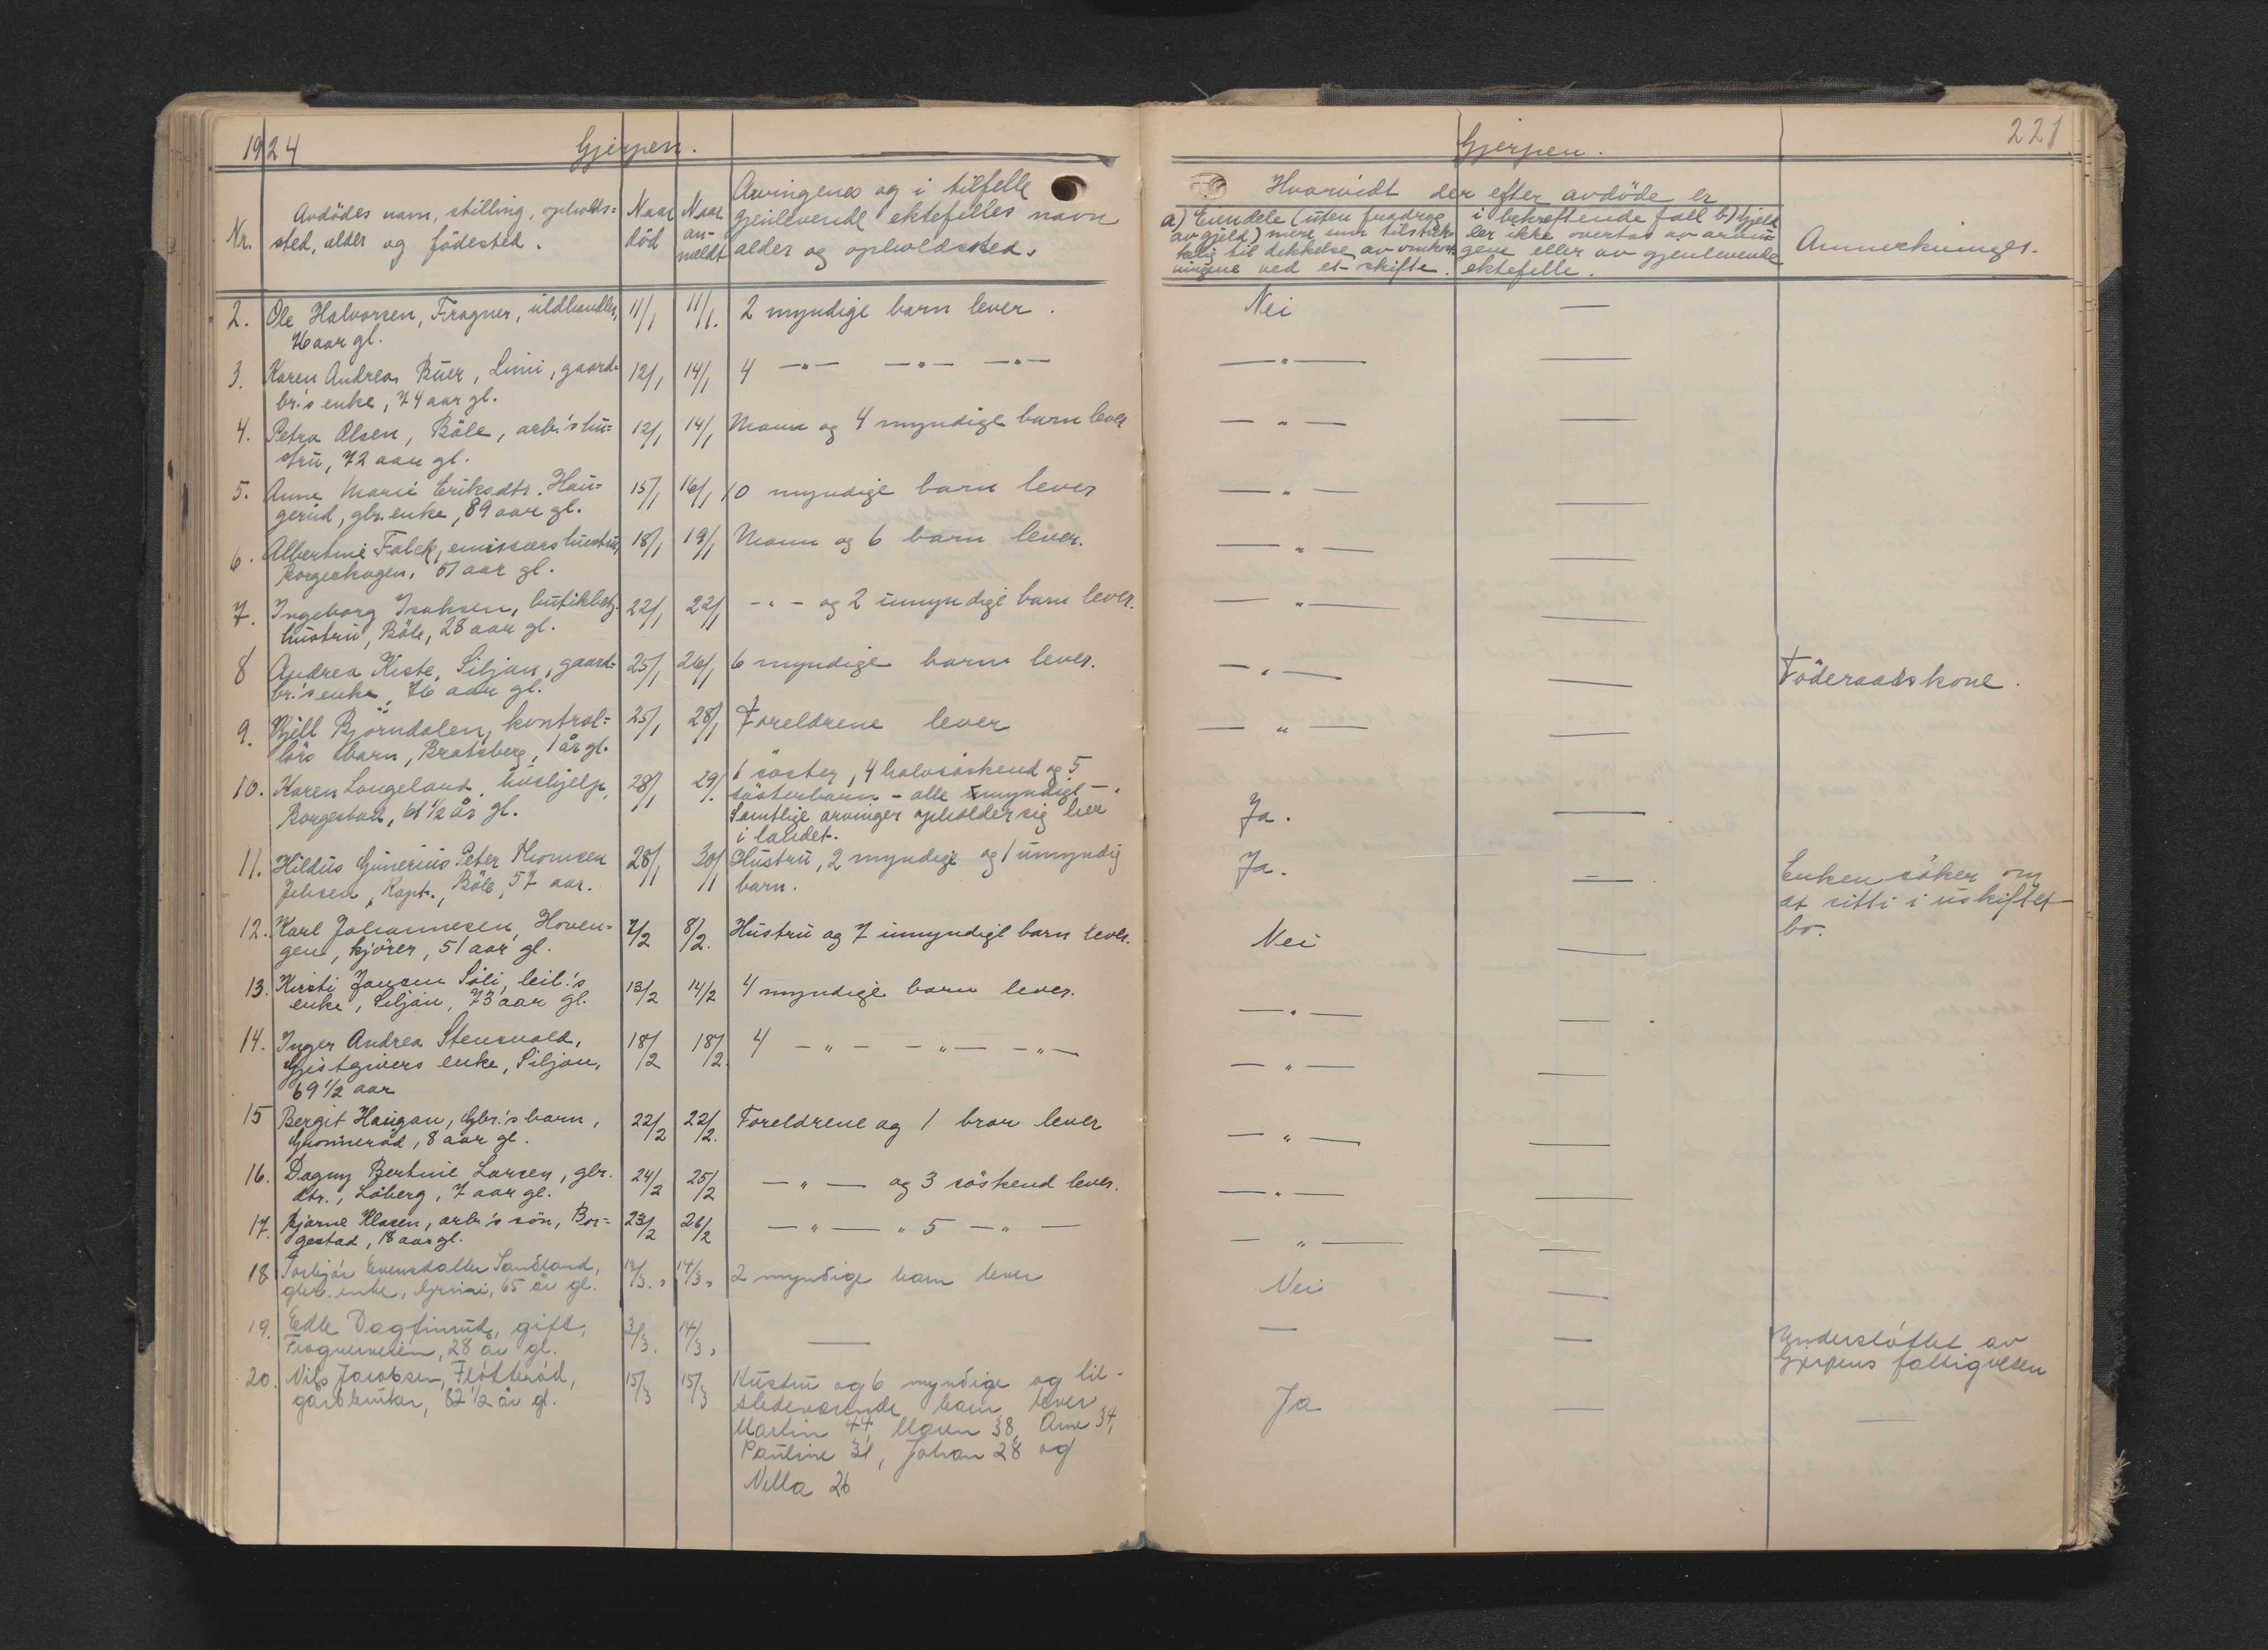 1924 Gjerpen.
Nr.
Avdödes navn, stilling, opholds=
sted, alder og födested.
Naar
död
Naar
an-
meldt
Arvingenes og i tilfelle
gjenlevende ektefelles navn
alder og opholdssted.
2. Ole Halvorsen, Frogner, uldhandler, 11/1 11/1. 2 myndige barn lever.
76 aar gl.
3. Karen Andrea Buer, Limi, gaard- 12/1 14/1 4 —"— —"— —"—
br.'s enke, 74 aar gl.
4. Petra Olsen, Böle, arb.'s hu= 12/1 14/1 Mann og 4 myndige barn lever
stru, 72 aar gl.
5. Anne Marie Eriksdtr. Hau= 15/1 16/1 10 myndige barn lever
gerud, gbr. enke, 89 aar gl.
6. Albertine Falck, emissærs hustru, 18/1 19/1 Mann og 6 barn lever.
Borgeskogen, 51 aar gl.
7. Ingeborg Isaksen, butikbetj. 22/1 22/1 -"- og 2 umyndige barn lever.
hustru, Böle, 28 aar gl.
8 Andrea Kiste, Siljan, gaard= 25/1 26/1 6 myndige barn lever.
br.'s enke, 76 aar gl.
9. Kjell Björndalen, kontrol= 25/1 28/1 Foreldrene lever
lörs barn, Bratsberg, 1 år gl.
10. Karen Langeland, hushjelp, 28/1 29/1. 1 söster, 4 halvsöskend og 5
Borgestad, 61 1/2 år gl. sösterbarn - alle myndige -.
Samtlige arvinger opholder sig her
i landet.
11. Hildus Gunerius Peter Thomsen 28/1 30/1 Hustru, 2 myndige og 1 umyndig
Jensen, Kapt., Böle, 57 aar. barn.
12. Karl Johannesen, Hoven= 7/2 8/2. Hustru og 7 umyndige barn lever.
gen, kjörer, 51 aar gl.
13. Kirsti Jansen Söli, leil.'s 13/2 14/2 4 myndige barn lever.
enke, Siljan, 73 aar gl.
14. Inger Andrea Stensvold, 18/2 18/2. 4 —"— —"— —"—
Gjestgivers enke, Siljan,
69 1/2 aar
15 Bergit Haugan, Gbr.'s barn, 22/2 22/2. Foreldrene og 1 bror lever
8 aar gl.
16. Dagny Bertine Larsen, gbr. 24/2 25/2 —"— og 3 söskend lever.
dtr., Löberg, 7 aar gl.
17. Bjarne Klasen, arb.'s sön, Bor= 23/2 26/2 —"— " 5 —"—
gestad, 18 aar gl.
18 Torbjör Evensdatter Sandland, 14/3. 2 myndige barn lever
gbr. enke, Grini, 65 år gl.
19. Edle Dagfinrud, gift, 2/3. 14/3. —
Frognerveien, 28 år gl.
20. Nils Jacobsen, Flötteröd, 15/3 15/3 Hustru og 6 myndige og til-
gårdbruker, 82 1/2 år gl. stedeværende barn lever
Martin 44, Maren 38, Arne 34,
Pauline 31, Johan 28 og
Nella 26
Gjerpen. 221
Hvorvidt der efter avdöde er
a) Eiendele (uten fradrag
av gjeld) mere enn tilstræk-
kelig til dekkelse av omkost-
ningene ved et skifte.
i bekreftende fall b) Gjeld
ler ikke overtas av arvin=
gene eller av gjenlevende
ektefelle.
Anmerkninger.
Nei —
—"— —
—"— —
—"— —
—"— —
—"— —
—"— — Föderaadskone.
—"— —
Ja. —
Ja. — Enken söker om
at sitti i uskiftet
bo.
Nei —
—"— —
—"— —
—"— —
—"— —
—"— —
Nei —
— — Understöttet av
Gjerpens fattigvesen
Ja —